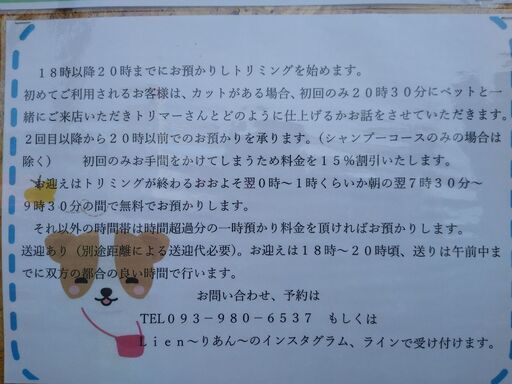 １８時以降２０時までにお預かりしトリミングを始めます。
初めてご利用されるお客様は、カットがある場合、初回のみ２０時３０分にペットと一
緒にご来店いただきトリマーさんとどのように仕上げるかお話をさせていただきます。
２回目以降から２０時以前でのお預かりを承ります。（シャンプーコースのみの場合は
除く）　　初回のみお手間をかけてしまうため料金を１５％割引いたします。
お迎えはトリミングが終わるおおよそ翌０時～１時くらいか朝の翌７時３０分～
９時３０分の間で無料でお預かりします。
それ以外の時間帯は時間超過分の一時預かり料金を頂ければお預かりします。
送迎あり（別途距離による送迎代必要）。お迎えは１８時～２０時頃、送りは午前中ま
でに双方の都合の良い時間で行います。
お問い合わせ、予約は
TEL０９３－９８０－６５３７　もしくは
Ｌｉｅｎ～りあん～のインスタグラム、ラインで受け付けます。